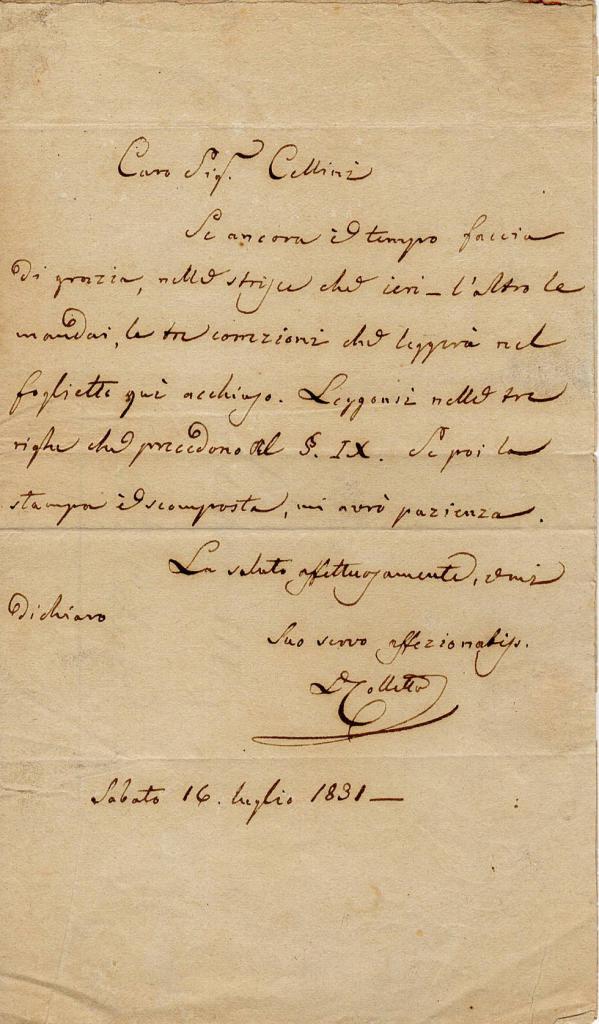 Caro Sig.r Cellini
Se ancora è tempo faccia
di grazia, nelle strisce che ieri – l'altro le
mandai, le tre correzioni che leggerà nel
foglietto quì acchiuso. Leggonsi nelle tre
righe che precedono al §. IX. Se poi la
stampa è scomposta, mi avrò pazienza.
La saluto affettuosamente, e mi
dichiaro
Suo servo affezionatiss.
Colletta
Sabato 16. luglio 1831 —